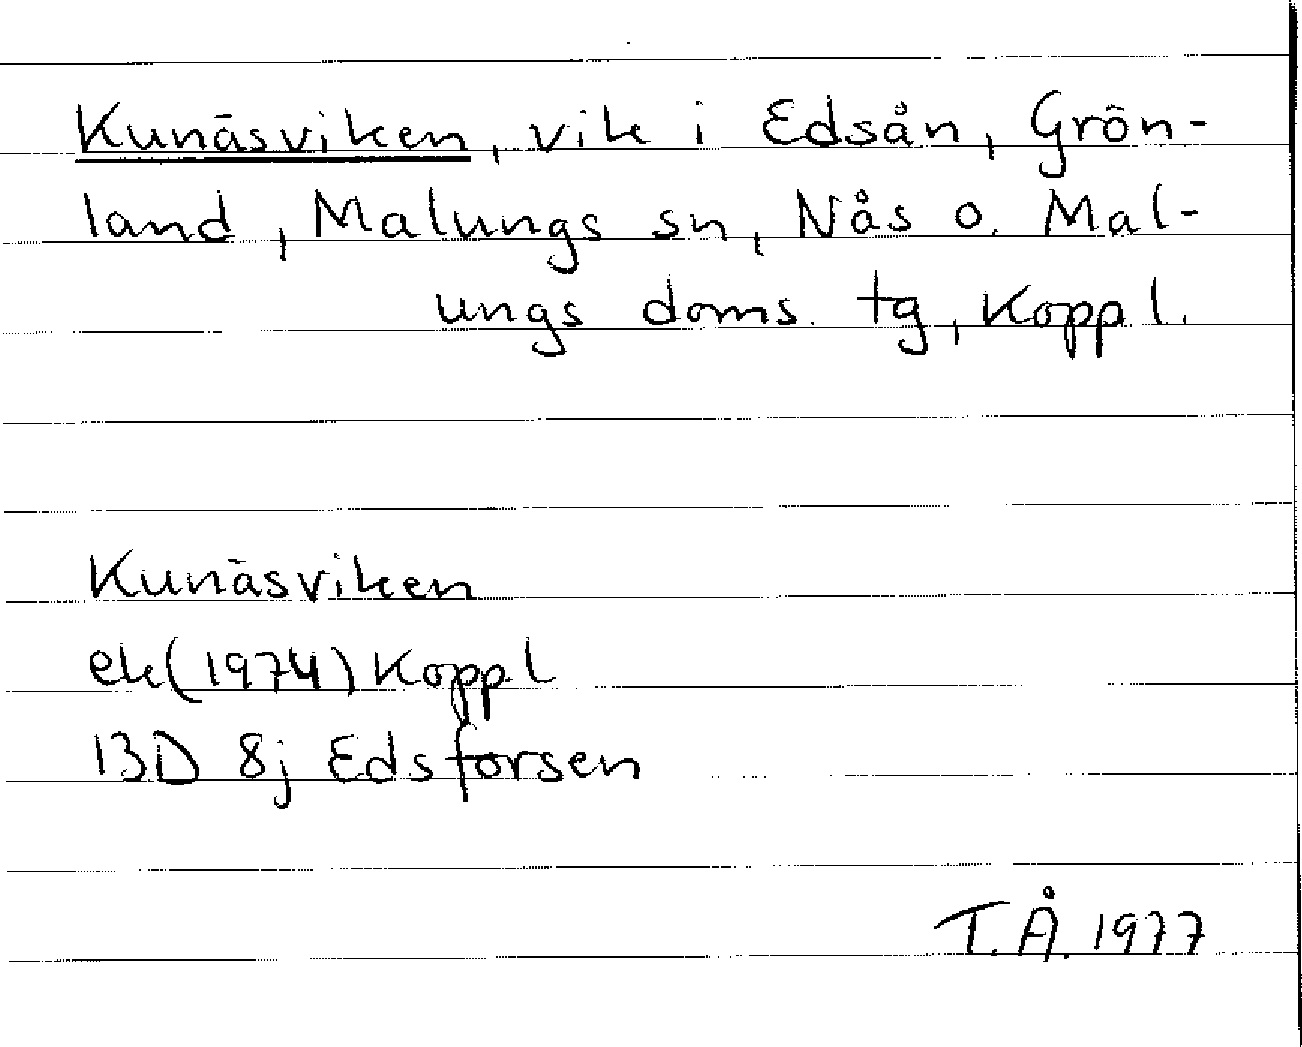 Kunäsviken, vik i Edsån, Grön-
land, Malungs sn, Nås o. Mal-
ungs doms. tg, Koppl.
Kunäsviken
ek(1974) Koppl
13D 8j Edsforsen
T.Å. 1977